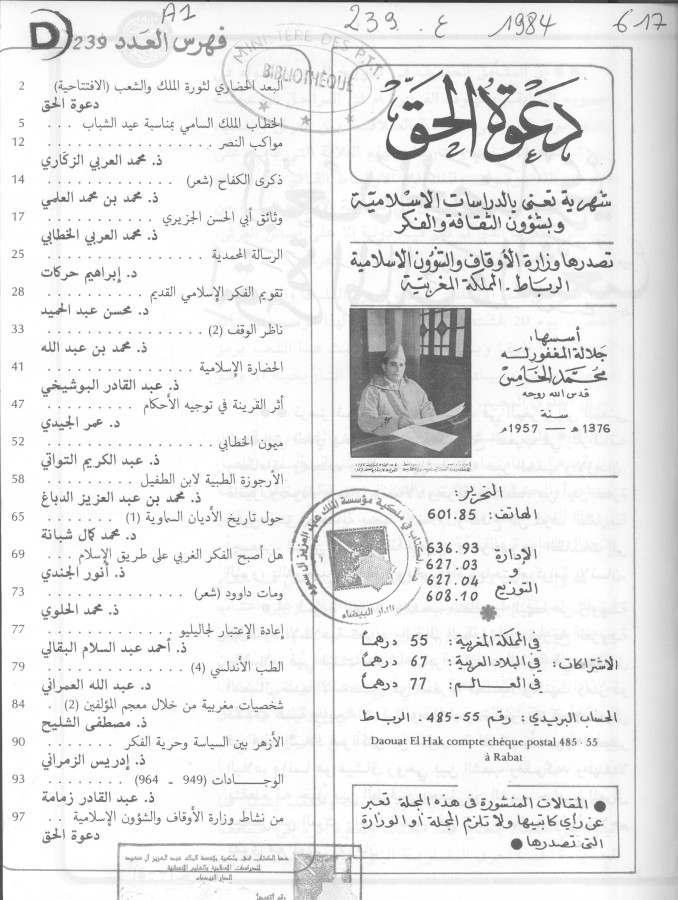 A1
239 ع. 1984
617
D
فهرس العدد 239
MINISTÈRE DES P.T.T.
BIBLIOTHÈQUE
البعد الحضاري لثورة الملك والشعب (الافتتاحية) 2
دعوة الحق
الخطاب الملك السامي بمناسبة عيد الشباب . . . 5
مواكب النصر . . . . . . . . . . . . 12
ذ. محمد العربي الزكاري
ذكرى الكفاح (شعر) . . . . . . . . . . 14
ذ. محمد بن محمد العلمي
وثائق أبي الحسن الجزيري . . . . . . . . 17
ذ. محمد العربي الخطابي
الرسالة المحمدية . . . . . . . . . . . 25
د. إبراهيم حركات
تقويم الفكر الإسلامي القديم . . . . . . . 28
د. محسن عبد الحميد
ناظر الوقف (2) . . . . . . . . . . . 33
ذ. محمد بن عبد الله
الحضارة الإسلامية . . . . . . . . . . 41
ذ. عبد القادر البوشيخي
أثر القرينة في توجيه الأحكام . . . . . . 47
د. عمر الجيدي
ميون الخطابي . . . . . . . . . . . . 52
ذ. عبد الكريم التواتي
الأرجوزة الطبية لابن الطفيل . . . . . . . 58
ذ. محمد بن عبد العزيز الدباغ
حول تاريخ الأديان السماوية (1) . . . . . . 65
د. محمد كمال شبانة
هل أصبح الفكر الغربي على طريق الإسلام . . . 69
ذ. أنور الجندي
ومات داوود (شعر) . . . . . . . . . . 73
ذ. محمد الحلوي
إعادة الإعتبار لجاليليو . . . . . . . . . 77
ذ. أحمد عبد السلام البقالي
الطب الأندلسي (4) . . . . . . . . . . 79
د. عبد الله العمراني
شخصيات مغربية من خلال معجم المؤلفين (2) . 84
ذ. مصطفى الشليح
الأزهر بين السياسة وحرية الفكر . . . . . 90
ذ. إدريس الزمراني
الوجادات (949 ـ 964) . . . . . . . . 93
ذ. عبد القادر زمامة
من نشاط وزارة الأوقاف والشؤون الإسلامية . . 97
دعوة الحق
دعوة الحق
شهرية تعنى بالدراسات الإسلامية
وبشؤون الثقافة والفكر
تصدرها وزارة الأوقاف والشؤون الاسلامية
الرباط ـ المملكة المغربية
أسسها:
جلالة المغفور له
محمد الخامس
قدس الله روحه
سنة
1376 هـ — 1957 م
التحرير:
الهاتف: 601.85
الإدارة و التوزيع
636.93
627.03
627.04
608.10
الاشتراكات:
في المملكة المغربية: 55 درهماً
في البلاد العربية: 67 درهماً
في العالم: 77 درهماً
الحساب البريدي: رقم 55-485 . الرباط
Daouat El Hak compte chèque postal 485 - 55
à Rabat
● المقالات المنشورة في هذه المجلة تعبر
عن رأي كاتبيها ولا تلزم المجلة أو الوزارة
التي تصدرها ●
هذا الكتاب في ملكية مؤسسة الملك عبد العزيز آل سعود
الدار البيضاء
هذا الكتاب في ملكية مؤسسة الملك عبد العزيز آل سعود
للدراسات الإسلامية والعلوم الإنسانية
الدار البيضاء